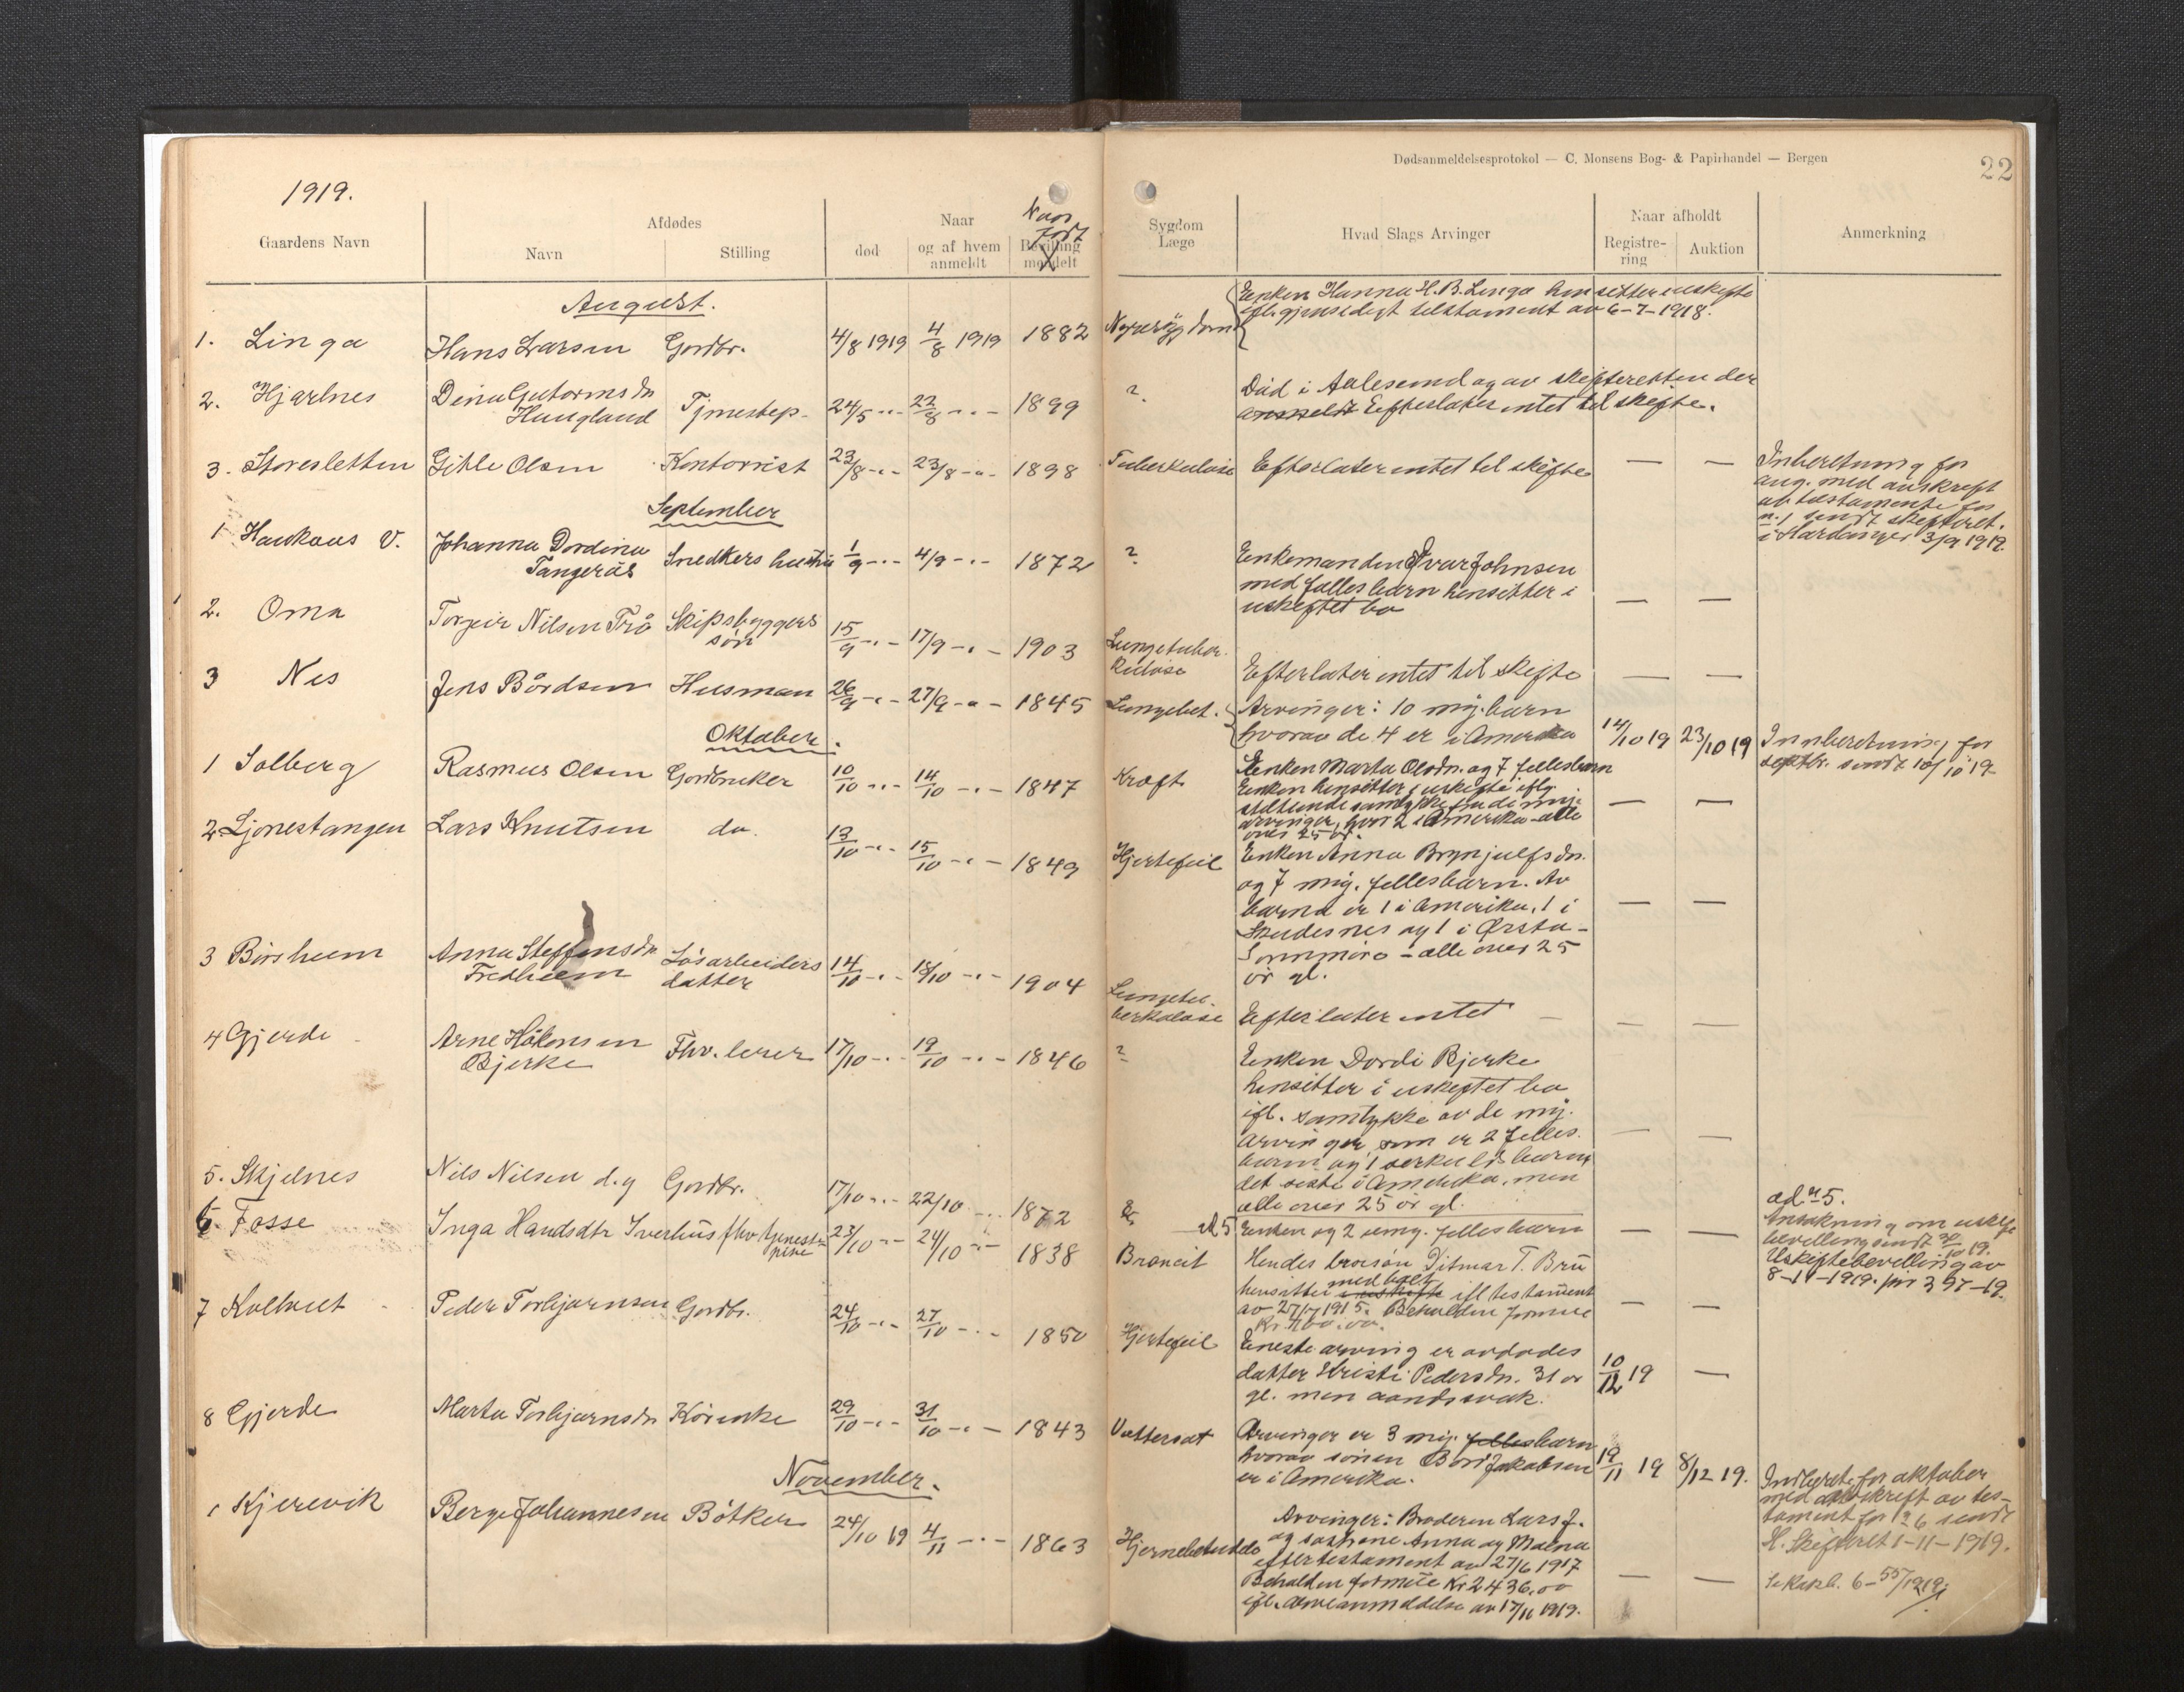 Dødsanmeldelsesprotokol — C. Monsens Bog- & Papirhandel — Bergen
22
1919.
Gaardens Navn
Afdødes
Navn
Stilling
Naar
død
og af hvem anmeldt
Bevilling meddelt
Naar født
Sygdom
Læge
Hvad Slags Arvinger
Naar afholdt
Registrering
Auktion
Anmerkning
August.
1. Linga Hans Larsen Gordbr. 4/8 1919 4/8 1919 1882
Enken Hanna H. B. Linga hensitter i uskifte
ifl. gjensidigt testament av 6-7-1918.
2. Hjartnes Dina Guttormsdn Haugland 24/5 -"- 22/8 -"- 1899 ?
Död i Aalesund og av skifteretten der
anmeldt Eefterlater intet til skifte.
3. Storesletten Gitle Olsen Kontorrist 23/8 -"- 23/8 -"- 1898 Tuberkulose
Efterlater intet til skifte — —
Inberetning for
aug. med avskreft
av testamente for
n. 1 sendt skifteret.
i Hardanger 3/9 1919.
September
1 Haukaas V. Johanna Dordina Tangerås Snedkers hustru 1/9 -"- 4/9 -"- 1872 ?
Enkemanden Ivar Johnsen
med fellesbarn hensitter i
uskiftet bo — —
2. Oma Torgeir Nilsen Trå Skipsbyggers sön 15/9 -"- 17/9 -"- 1903 Lungetuberkulose
Efterlater intet til skifte — —
3 Nes Jens Bårdsen Husman 26/9 -"- 27/9 -"- 1845 Lungebet.
Arvinger: 10 myg. barn
hvorav de 4 er i Amerika 14/10 19 23/10 19
Innberetning for
septbr. sendt 10/10 19
Oktober.
1 Solberg Rasmus Olsen Gordbruker 10/10 -"- 14/10 -"- 1847 Kræft
Enken Marta Olsdn. og 7 fellesbarn
Enken hensitter i uskifte iflg.
samtykke fra de myg.
arvinger, hvor 2 i Amerika - alle
over 25 år. — —
2 Ljonestangen Lars Knutsen do. 13/10 -"- 15/10 -"- 1849 Hjertefeil
Enken Anna Brynjulfsdn.
og 7 myg. fellesbarn. Av
barna er 1 i Amerika, 1 i
Skudesnes og 1 i Ørsta -
Sonnmöre - alle over 25
år gl. — —
3 Börsheim Anna Steffensdn Fredheim Lösarbeiders datter 14/10 -"- 18/10 -"- 1904 Lungetuberkulose
Efterlater intet — —
4 Gjerde Arne Håkonsen Bjerke Fhv. lærer 17/10 -"- 19/10 -"- 1846 ?
Enken Dordi Bjerke
hensitter i uskiftet bo
ifl. samtykke av de myg.
arvinger, som er 2 felles
barn og 1 serkulsbarn
det siste i Amerika, men
alle over 25 år gl. — —
5. Skjelnes Nils Nilsen d.y Gordbr. 17/10 -"- 22/10 -"- 1872
Ad 5 Enken og 2 umg. fellesbarn — —
ad n 5.
Ansökning om uskifte
bevilling sendt /10 19.
Uskiftebevilling av
8-11-1919. jnr 397-19.
6. Fosse Inga Handsdtr Iverhus fhv tjenestepike 23/10 -"- 24/10 -"- 1838 Broncit
Hendes brorsön Ditmar T. Bru
hensitter i uskifte med boet ifl testament
av 27/7 1915. Beholden formue
Kr. 400.00. — —
7 Kolltveit Peder Torbjørnsen Gordbr. 24/10 -"- 27/10 -"- 1850 Hjertefeil
Eneste arving er avdødes
datter Kristi Pedersdn. 31 år
gl. men aandssvak. 10/12 19 —
8 Gjerde Marta Torbjørnsdn Kårenke 29/10 -"- 31/10 -"- 1843 Vattersot
Arvinger er 3 myg. fellesbarn
hvorav sönen Bård Jakobsen
er i Amerika. 19/11 19 8/12 19.
Indberetn for oktober
med avskreft av tes-
tament for n 6 sendt
H. Skifteret 1-11-1919.
November.
1 Kjerevik Berge Johannesen Bötker 24/10 19 4/11 -"- 1863 Hjernebetendelse
Arvinger: Broderen Lars J.
og søstrene Anna og Marna
efter testament av 27/6 1917
Beholden formue Kr 2436.00
ifl. arveanmeldelse av 17/11 1919. — —
6-55/1919